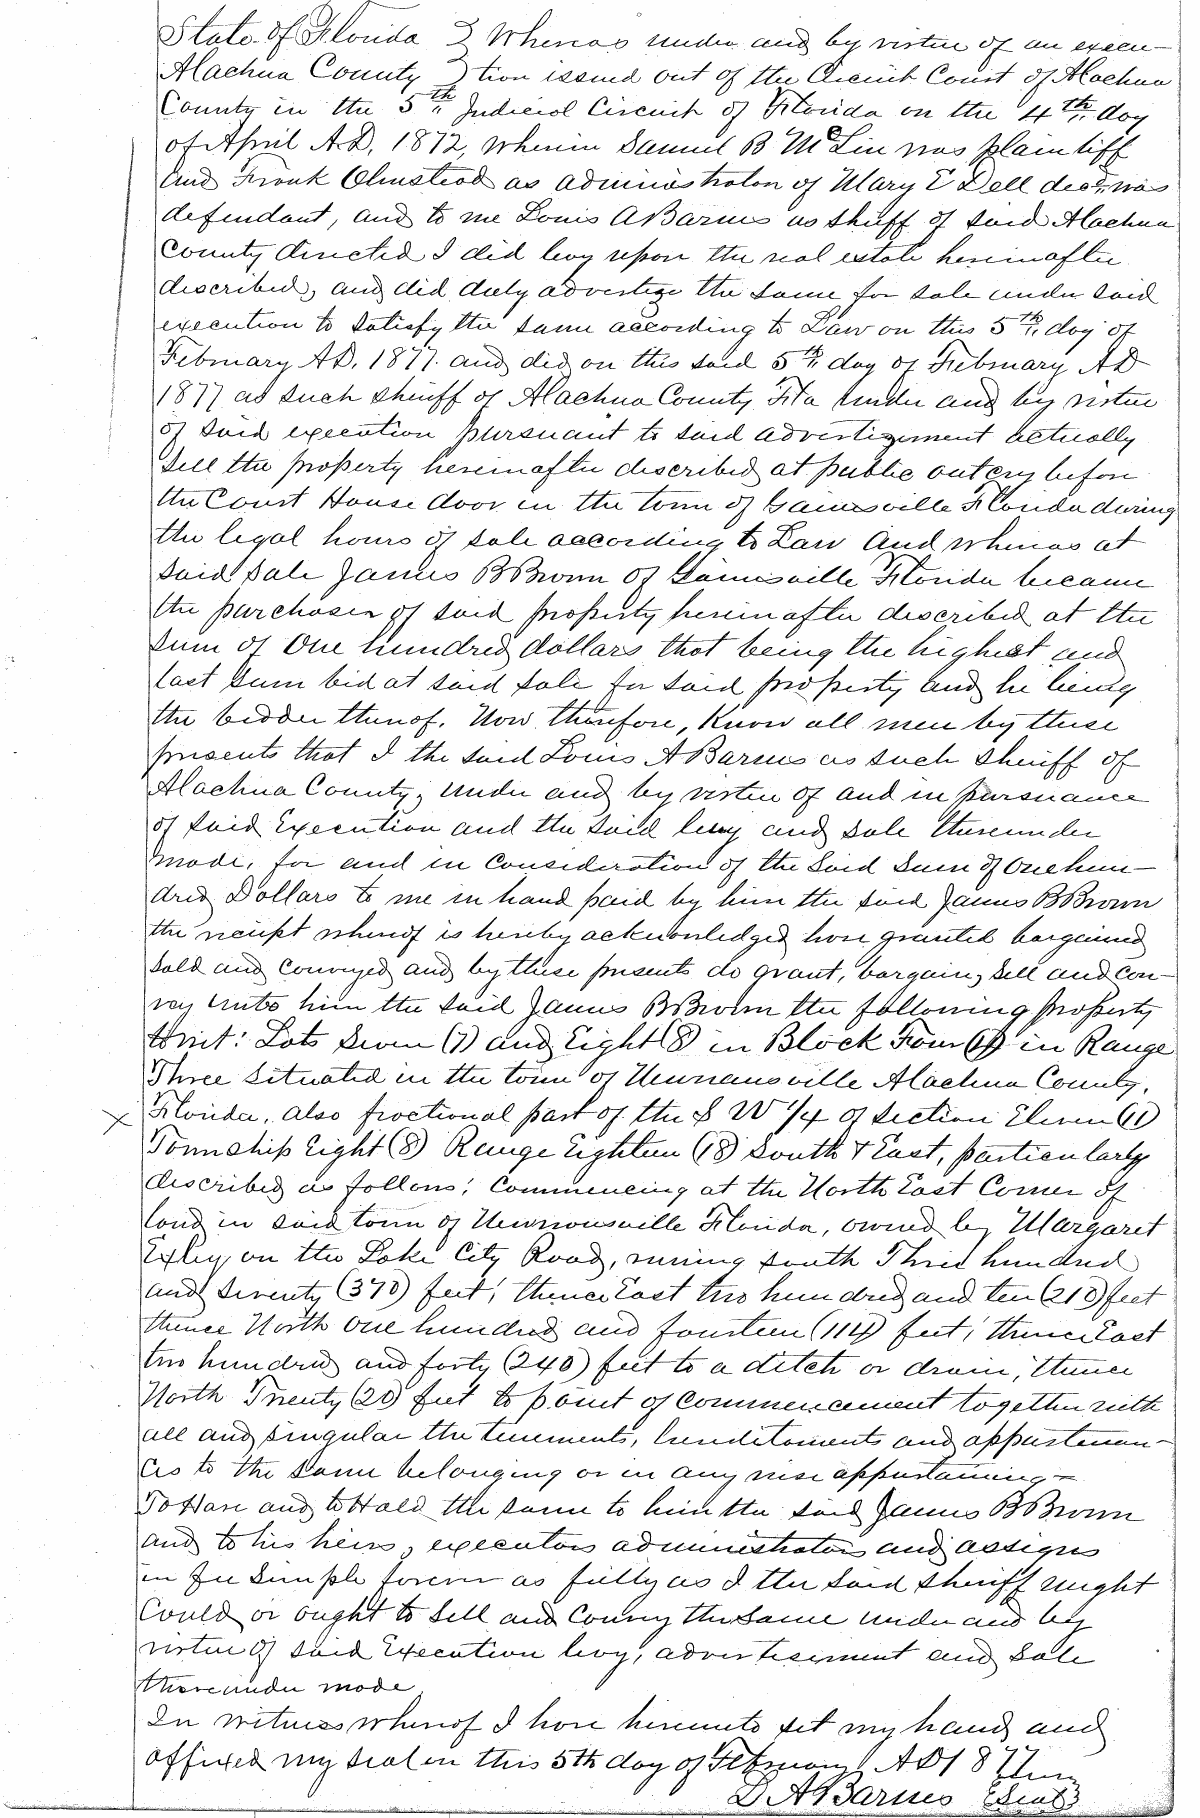 State of Florida } Whereas under and by virtue of an execu-
Alachua County } tion issued out of the Circuit Court of Alachua
County in the 5th Judicial Circuit of Florida on the 4th day
of April A.D, 1872, wherein Samuel B McLin was plaintiff
and Frank Olmstead as administrator of Mary E Dell decd, was
defendant, and to me Louis A Barnes as Sheriff of said Alachua
County directed I did levy upon the real estate hereinafter
described, and did duly advertize the same for sale under said
execution to satisfy the same according to Law on this 5th day of
February A.D. 1877. and did on this said 5th day of February A D
1877 as such sheriff of Alachua County Fla under and by virtue
of said execution pursuant to said advertizement actually
Sell the property hereinafter described at public outcry before
the Court House door in the town of Gainesville Florida during
the legal hours of sale according to Law and whereas at
said sale James B Brown of Gainesville Florida became
the purchaser of said property hereinafter described at the
sum of One hundred dollars that being the highest and
last sum bid at said sale for said property and he being
the bidder thereof. Now therefore, Know all men by these
presents that I the said Louis A Barnes as such sheriff of
Alachua County, under and by virtue of and in pursuance
of said Execution and the said levy and sale thereunder
made, for and in consideration of the said sum of One hun-
dred Dollars to me in hand paid by him the said James B Brown
the receipt whereof is hereby acknowledged have granted bargained
sold and conveyed and by these presents do grant, bargain, sell and con-
vey unto him the said James B Brown the following property
towit: Lots Seven (7) and Eight (8) in Block Four (4) in Range
Three situated in the town of Newnansville Alachua County,
X Florida, also fractional part of the S W 1/4 of Section Eleven (11)
Township Eight (8) Range Eighteen (18) South & East, particularly
described as follows; Commencing at the North East Corner of
land in said town of Newnansville Florida, owned by Margaret
Exley, on the Lake City Road, runing south Three hundred
and Seventy (370) feet; thence East two hundred and ten (210) feet
thence North one hundred and fourteen (114) feet; thence East
two hundred and forty (240) feet to a ditch or drain, thence
North Twenty (20) feet to point of commencement together with
all and singular the tenements, hereditaments and appurtenan-
ces to the same belonging or in any wise appurtaining-
To Have and to Hold the same to him the said James B Brown
and to his heirs, executors administrators and assigns
in fee Simple forever as fully as I the said sheriff might
Could or ought to sell and Convey the same under and by
virtue of said Execution levy, advertisement and Sale
thereunder made,
In witness whereof I have hereunto set my hand and
affixed my seal on this 5th day of February A D 1877
L A Barnes {Seal}